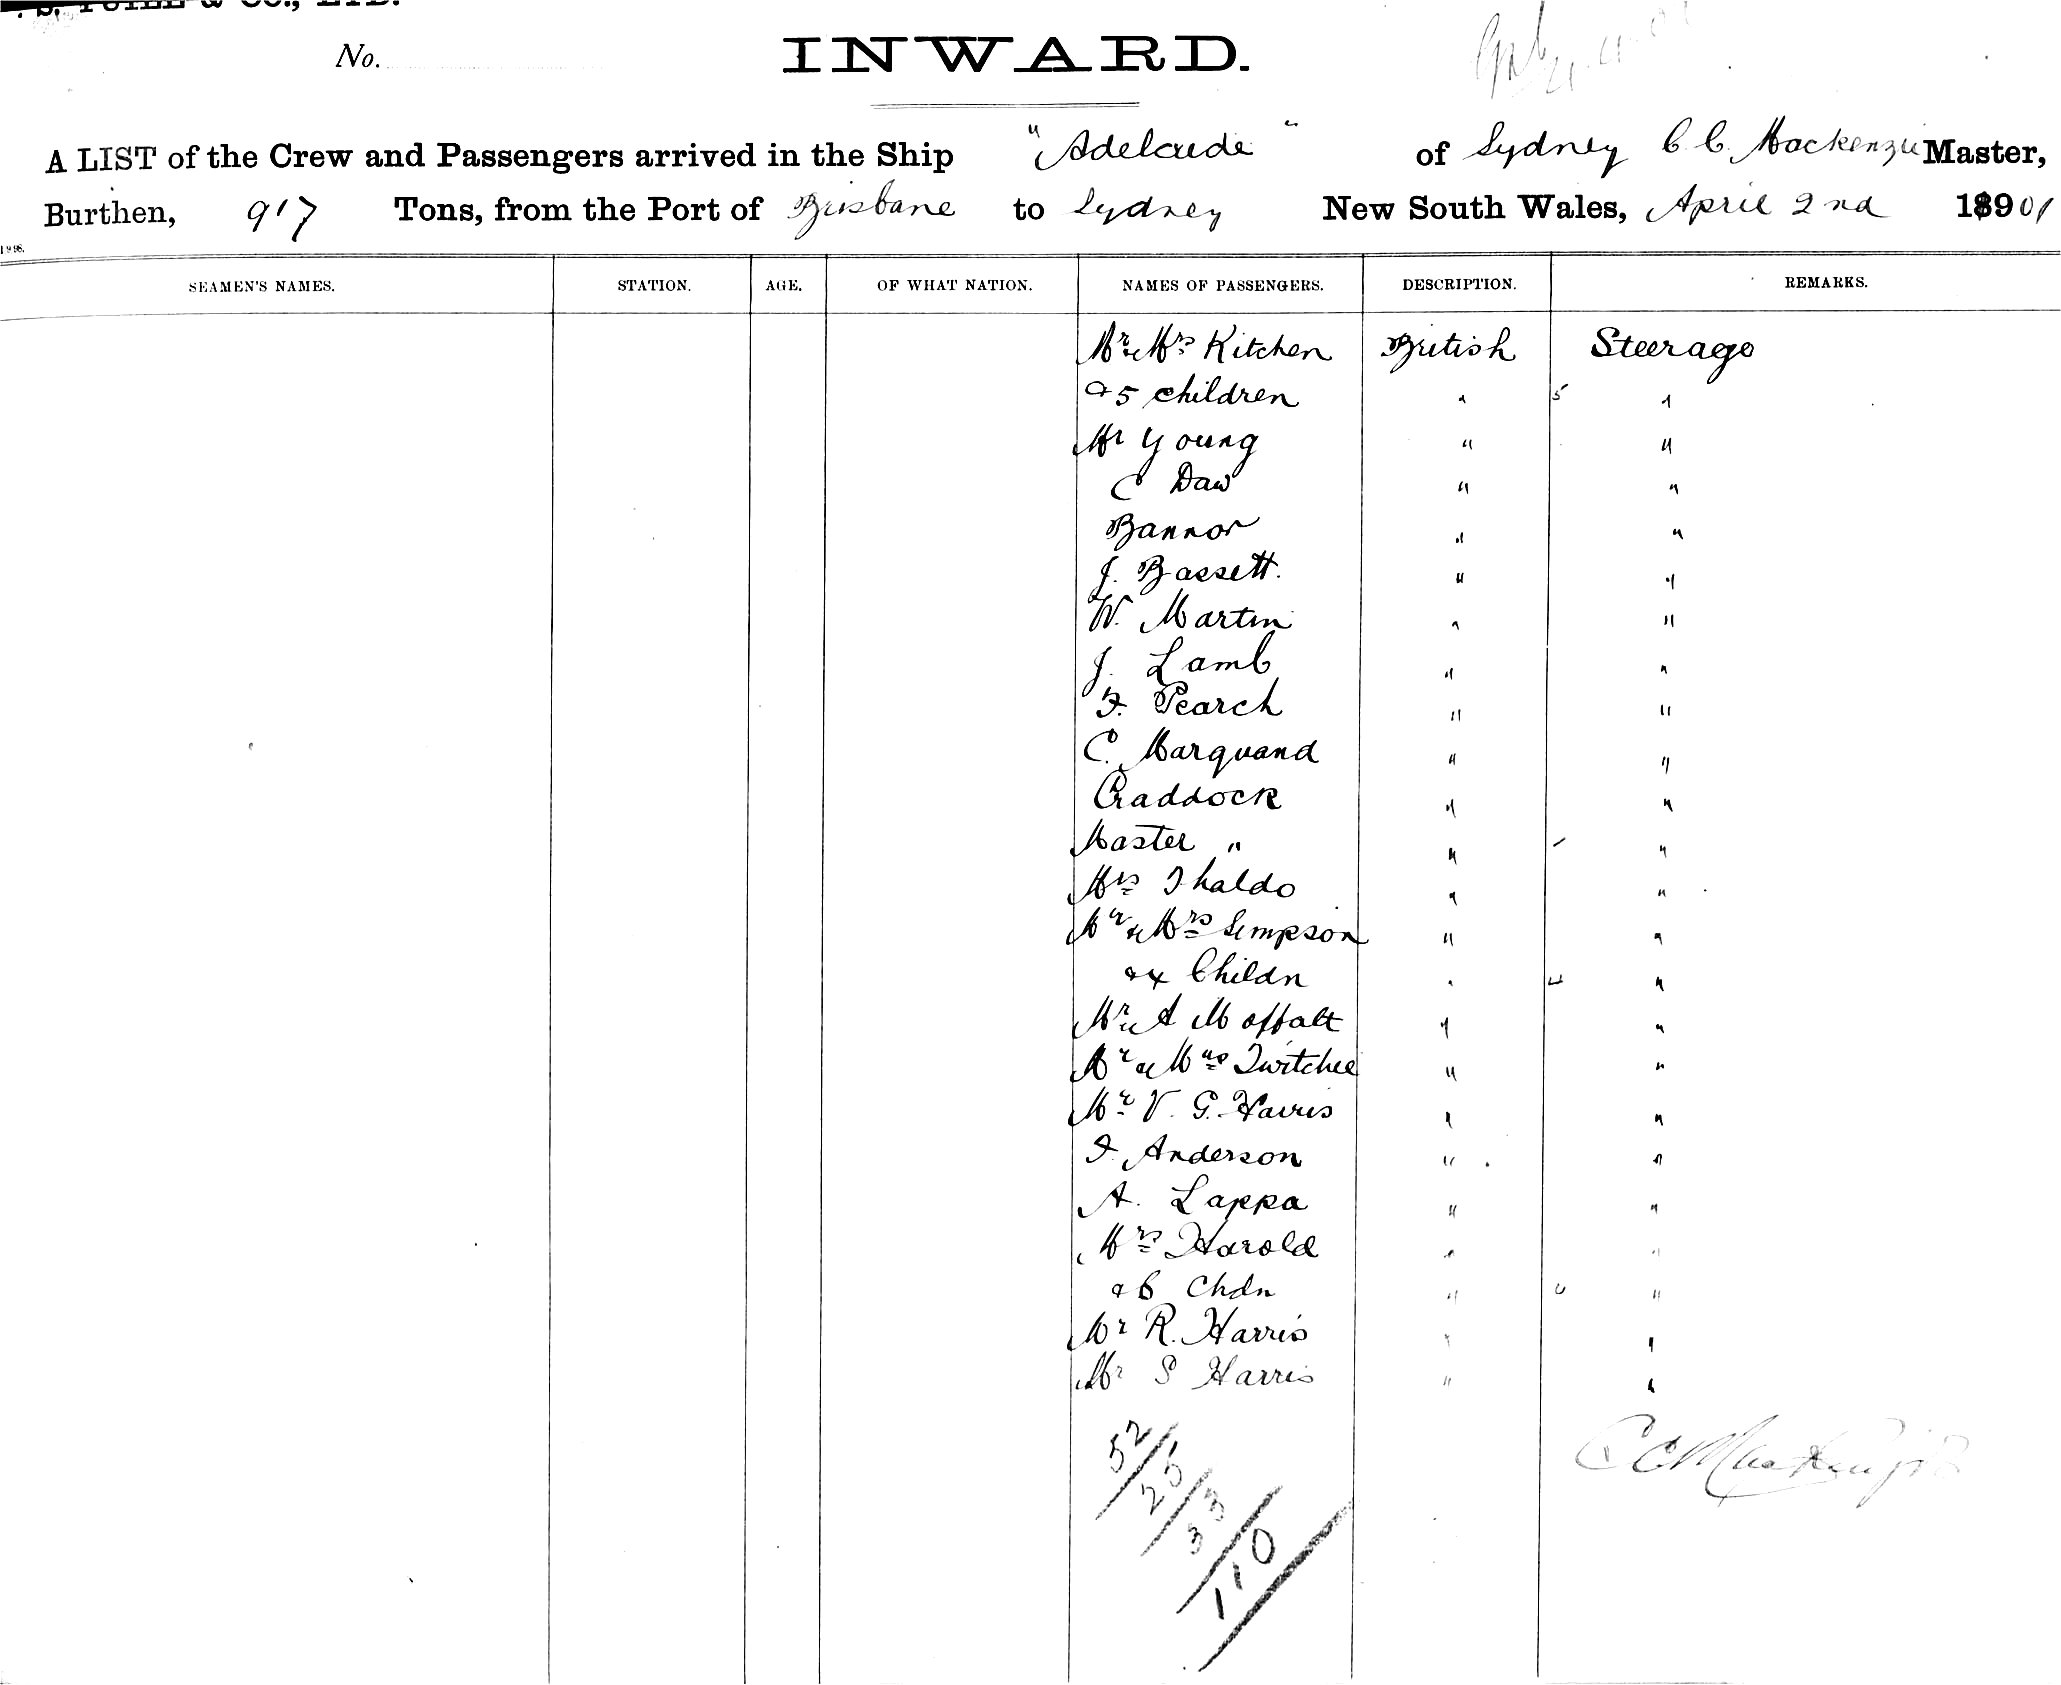 & CO., LTD.
No.
INWARD.
A LIST of the Crew and Passengers arrived in the Ship "Adelaide" of Sydney C. C. Mackenzie Master,
Burthen, 917 Tons, from the Port of Brisbane to Sydney New South Wales, April 2nd 18901
SEAMEN'S NAMES. STATION. AGE. OF WHAT NATION. NAMES OF PASSENGERS. DESCRIPTION. REMARKS.
Mr & Mrs Kitchen British Steerage
& 5 children " 5 "
Mr Young " "
C Daw " "
Bannor " "
J. Bassett. " "
W. Martin " "
J. Lamb " "
F. Pearch " "
C. Marquand " "
Craddock " "
Master " " "
Mrs Thaldo " "
Mr & Mrs Simpson " "
& 4 Childn " 4 "
Mr A Moffatt " "
Mr & Mrs Twitchee " "
Mr V. G. Harris " "
F. Anderson " "
A. Lappa " "
Mrs Harold " "
& 6 Chdn " "
Mr R. Harris " "
Mr S Harris " "
52
25
33
110
C C Mackenzie